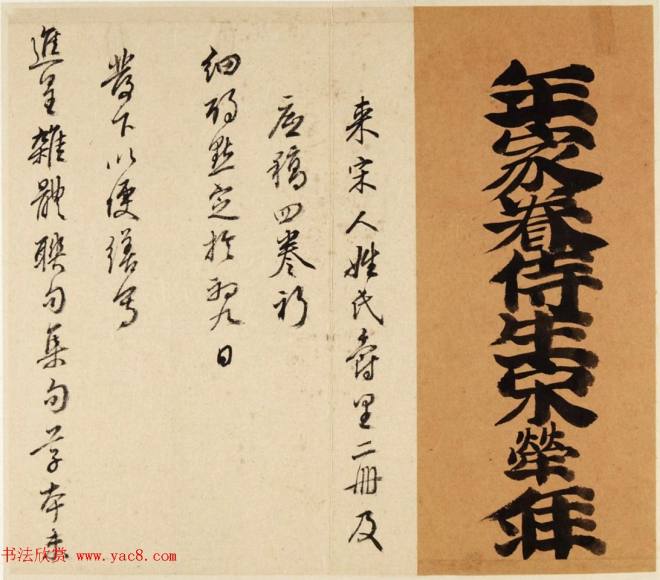 年家眷侍生宋犖拜
来宋人姓氏爵里二冊及
底稿四卷祈
细酌點定於初九日
發下以便繕寫
進呈雜體聯句集句草本未
书法欣赏 www.yac8.com